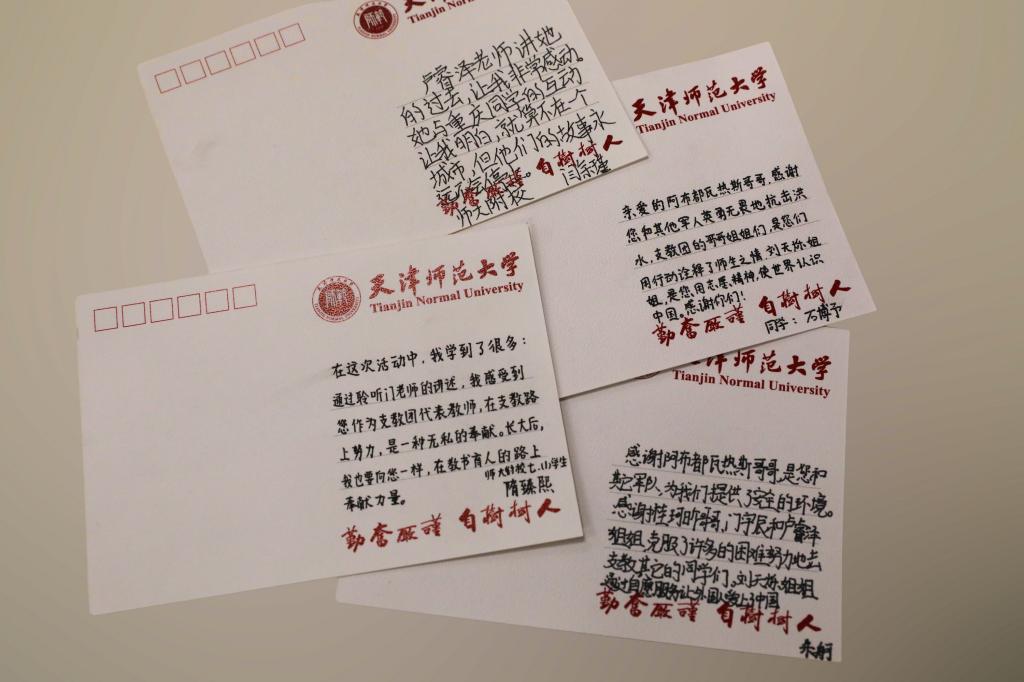 Tianjin Norm
卢睿泽老师讲她
的过去,让我非常感动。
她与重庆同学的互动
让我明白,就算不在一个
城市,但他们们的故事永
远不会停下。
师大附校 闫宗瑾
勤奋严谨 自樹樹人
天津师范大学
Tianjin Normal University
亲爱的阿布都瓦热斯哥哥,感谢
您和其他军人英勇无畏地抗击洪
水,支教团的哥哥姐姐们,是您们
用行动诠释了师生之情,刘天姊姐
姐,是您用志愿精神,使世界认识
中国。感谢你们!
勤奮严謹 自樹樹人
同学:石博予
天津师范大学
Tianjin Normal University
在这次活动中,我学到了很多:
通过聆听门老师的讲述,我感受到
您作为支教团代表教师,在支教路
上努力,是一种无私的奉献。长大后,
我也要向您一样,在教书育人的路上
奉献力量。
师大附校七.(1)学生
隋臻熙
勤奮严謹 自樹樹人
津师范大学
Tianjin Normal University
感谢阿布都瓦热斯哥哥,是您和
其它军队,为我们提供了安全的环境。
感谢桂珂昨哥哥,门宇辰和卢睿泽
姐姐,克服了许多的困难努力地去
支教其它的同学们。刘天姊姐姐
通过自愿服务让外国人爱上了中国
勤奮严謹 自樹樹人
朱舸